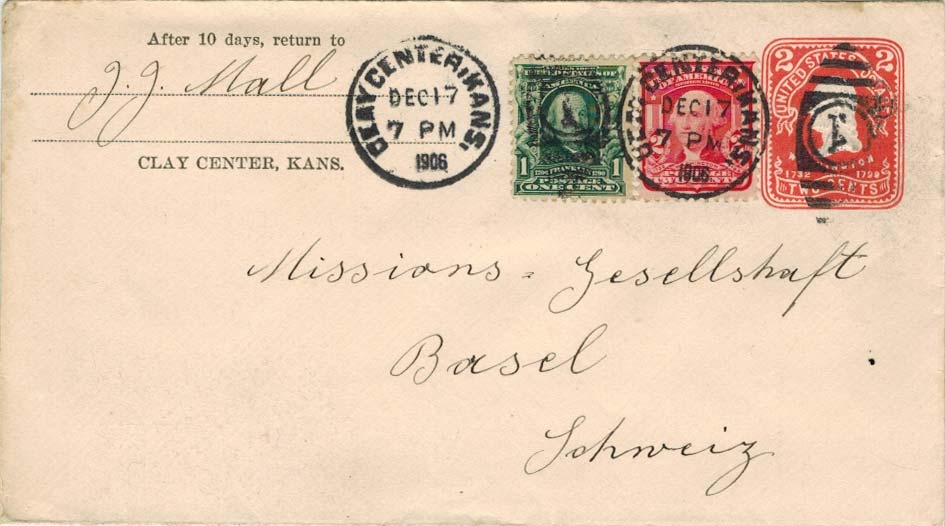 After 10 days, return to
J. J. Mall
CLAY CENTER, KANS.
CLAY CENTER, KANS.
DEC 17
7 PM
1906
1
FRANKLIN
POSTAGE
1
ONE CENT
CLAY CENTER, KANS.
DEC 17
7 PM
1906
OF AMERICA
2
UNITED STATES
2
1732
1799
TWO CENTS
1
Missions = Gesellshaft
Basel
Schweiz